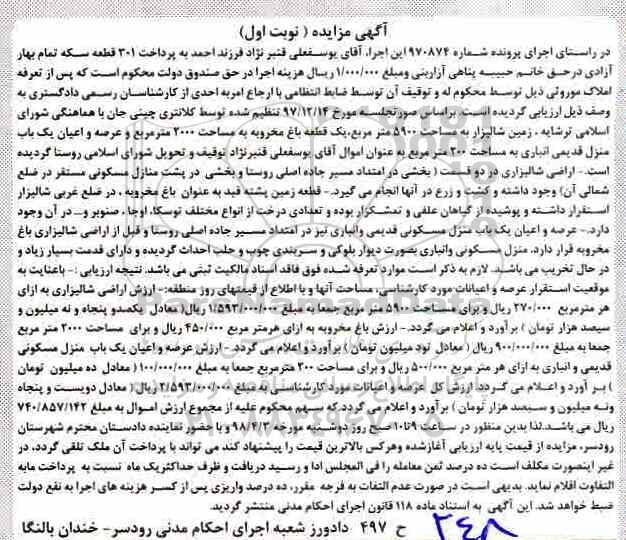 آگهی مزایده ( نوبت اول)
در راستای اجرای پرونده شماره ۹۷۰۸۷۴ این اجرا، آقای یوسفعلی قنبر نژاد فرزند احمد به پرداخت ۳۰۱ قطعه سکه تمام بهار
آزادی درحق خانم حبیبه پناهی آزاربنی ومبلغ ۱/۰۰۰/۰۰۰ ریال هزینه اجرا در حق صندوق دولت محکوم است که پس از تعرفه
املاک موروثی ذیل توسط محکوم له و توقیف آن توسط ضابط انتظامی با ارجاع امربه احدی از کارشناسان رسمی دادگستری به
وصف ذیل ارزیابی گردیده است. براساس صورتجلسه مورخ ۹۷/۱۲/۱۴ تنظیم شده توسط کلانتری چینی جان با هماهنگی شورای
اسلامی ترشایه . زمین شالیزار به مساحت ۵۹۰۰ متر مربع،یک قطعه باغ مخروبه به مساحت ۲۰۰۰ مترمربع و عرصه و اعیان یک باب
منزل قدیمی انباری به مساحت ۲۰۰ متر مربع به عنوان اموال آقای یوسفعلی قنبرنژاد توقیف و تحویل شورای اسلامی روستا گردیده
است. - اراضی شالیزاری در دو قسمت ( بخشی در امتداد مسیر جاده اصلی روستا و بخشی در پشت منازل مسکونی مستقر در ضلع
شمالی آن) وجود داشته و کشت و زرع در آنها انجام می گیرد. - قطعه زمین پشته قید به عنوان باغ مخروبه ، در ضلع غربی شالیزار
استقرار داشته و پوشیده از گیاهان علفی و تمشکزار بوده و تعدادی درخت از انواع مختلف توسکا، اوجا ، صنوبر و... در آن وجود
دارد. - عرصه و اعیان یک باب منزل مسکونی قدیمی وانباری نیز در امتداد مسیر جاده اصلی روستا و قبل از اراضی شالیزاری باغ
مخروبه قرار دارد. منزل مسکونی وانباری بصورت دیوار بلوکی و سربندی چوب و حلب احداث گردیده و دارای قدمت بسیار زیاد و
در حال تخریب می باشد. لازم به ذکر است موارد تعرفه شده فوق فاقد اسناد مالکیت ثبتی می باشد. نتیجه ارزیابی : - باعنایت به
موقعیت استقرار عرصه و اعیانات مورد کارشناسی، مساحت آنها و با اطلاع از قیمتهای روز منطقه:- ارزش اراضی شالیزاری به ازای
هر مترمربع ۲۷۰/۰۰۰ ریال و برای مساحت ۵۹۰۰ متر مربع جمعا به مبلغ ۱/۵۹۳/۰۰۰/۰۰۰ ریال( معادل یکصدو پنجاه و نه میلیون و
سیصد هزار تومان ) برآورد و اعلام می گردد. - ارزش باغ مخروبه به ازای هرمتر مربع ۴۵۰/۰۰۰ ریال و برای مساحت ۲۰۰۰ متر مربع
جمعا به مبلغ ۹۰۰/۰۰۰/۰۰۰ ریال ( معادل نود میلیون تومان ) برآورد و اعلام می گردد - ارزش عرصه و اعیان یک باب منزل مسکونی
قدیمی و انباری به ازای هر متر مربع ۵۰۰/۰۰۰ ریال و برای مساحت ۲۰۰ مترمربع جمعا به مبلغ ۱۰۰/۰۰۰/۰۰۰ ( معادل ده میلیون تومان
) بر آورد و اعلام می گردد. ارزش کل عرصه و اعیانات مورد کارشناسی به مبلغ ۲/۵۹۳/۰۰۰/۰۰۰ ریال ( معادل دویست و پنجاه
ونه میلیون و سیصد هزار تومان ) برآورد و اعلام می گردد.که سهم محکوم علیه از مجموع ارزش اموال به مبلغ ۷۴۰/۸۵۷/۱۴۲
ریال می باشد.لذا بدین منظور در ساعت ۹تا۱۰ صبح روز دوشنبه مورخه ۹۸/۴/۳ و با حضور نماینده دادستان محترم شهرستان
رودسر، مزایده از قیمت پایه ارزیابی آغازشده وهرکس بالاترین قیمت را پیشنهاد کند می تواند با پرداخت آن ملک تلقی گردد، در
غیر اینصورت مکلف است ده درصد ثمن معامله را فی المجلس ادا و رسید دریافت و ظرف حداکثریک ماه نسبت به پرداخت مابه
التفاوت اقلام نماید. بدیهی است در صورت عدم التفات به فرجه مقرر، ده درصد واریزی پس از کسر هزینه های اجرا به نفع دولت
ضبط خواهد شد. این آگهی به استناد ماده ۱۱۸ قانون اجرای احکام مدنی منتشر گردید.
ح ۴۹۷ دادورز شعبه اجرای احکام مدنی رودسر- خندان بالنگا
۲۴۸